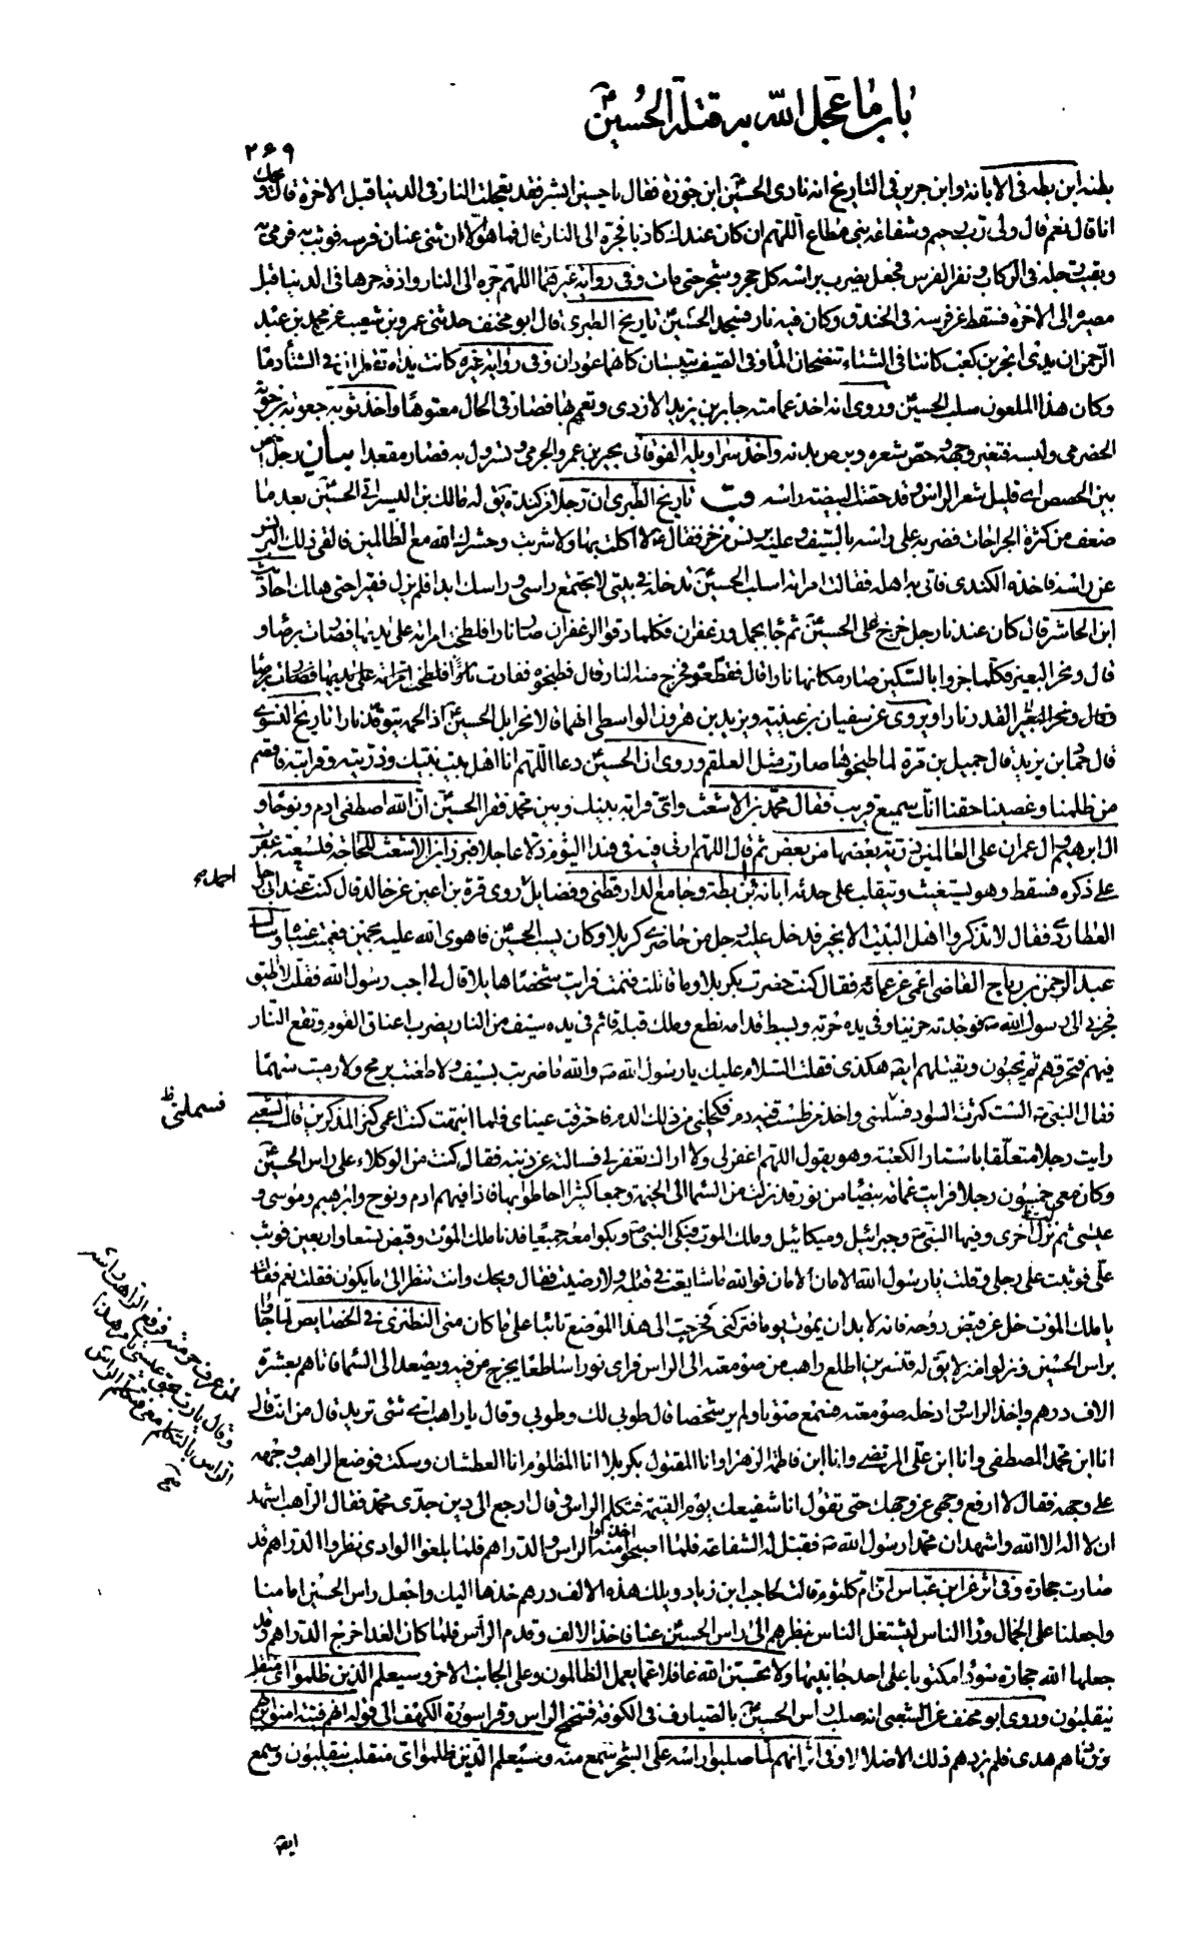 باب ما عجل الله به قتلة الحسين ع
۲۶۹
بطنه ابن بطه فى الابانة وابن جرير فى التاريخ انه نادى الحسين ابن جوزة فقال يا حسين ابشر فقد تعجلت النار فى الدنيا قبل الاخرة قال ويحك
انا قال نعم قال ولى رب رحيم وشفاعة نبى مطاع اللهم ان كان عندك كاذبا فجره الى النار قال فما هو الا ان ثنى عنان فرسه فوثب به فرمى به
وبقيت رجله فى الركاب ونفر الفرس فجعل يضرب براسه كل حجر وشجر حتى مات وفى رواية غيرهما اللهم جره الى النار واذقه حرها فى الدنيا قبل
مصيره الى الاخرة فسقط عن فرسه فى الخندق وكان فيه نار فسجد الحسين ع تاريخ الطبرى قال ابو مخنف حدثنى عمرو بن شعيب عن محمد بن عبد
الرحمن ان يدى ابجر بن كعب كانتا فى الشتاء تنضحان الماء وفى الصيف تيبسان كانهما عودان وفى رواية غيره كانت يداه تقطران فى الشتاء دما
وكان هذا الملعون سلب الحسين ع وروى انه اخذ عمامته جابر بن يزيد الازدى وتعمم بها فصار فى الحال معتوها واخذ ثوبه جعوبة بن حوية
الحضرمى ولبسه فتغير وجهه وحص شعره وبرص بدنه واخذ سراويله الفوقانى بحير بن عمرو الجرمى وتسرول به فصار مقعدا بيان رجل احص
بين الحصص اى قليل شعر الراس وقد حصت البيضة راسه قب تاريخ الطبرى ان رجلا من كندة يق له مالك بن اليسر اتى الحسين ع بعد ما
ضعف من كثرة الجراحات فضربه على راسه بالسيف وعليه برنس من خز فقال ع لا اكلت بها ولا شربت وحشرك الله مع الظالمين فالقى ذلك البرنس
عن راسه فاخذه الكندى فاتى به اهله فقالت امراته اسلب الحسين ع تدخله فى بيتى لا يجتمع راسى وراسك ابدا فلم يزل فقيرا حتى هلك احاديث
ابن الحاشر قال كان عندنا رجل خرج على الحسين ع ثم جاء بجمل وزعفران فكلما دقوا الزعفران صار نارا فلطخت امراته على يديها فصارت برصاء
قال ونحر البعير فكلما جزوا بالسكين صار مكانها نارا قال فقطعوه فخرج منه النار قال فطبخوه ففارت
وقال ونحر القدر نارا ويروى عن سفيان بن عيينة ويزيد بن هرون الواسطى انهما قالا نحر ابل الحسين ع فاذا لحمه يتوقد نارا تاريخ النسوى
قال حماد بن يزيد قال جميل بن مرة لما طبخوها صارت مثل العلقم وروى ان الحسين ع دعا اللهم انا اهل بيت نبيك وذريته وقرابته فاقصم
من ظلمنا وغصبنا حقنا انك سميع قريب فقال محمد بن الاشعث واى قرابة بينك وبين محمد فقرا الحسين ع ان الله اصطفى ادم ونوحا و
ال ابرهيم وال عمران على العالمين ذرية بعضها من بعض ثم قال اللهم ارنى فيه فى هذا اليوم ذلا عاجلا فبرز ابن الاشعث للحاجة فلسعته عقرب
على ذكره فسقط وهو يستغيث ويتقلب على حدثه ابانة ابن بطة وجامع الدار قطنى وفضايل احمد صح روى قرة بن اعين عن خاله قال كنت عند ابى رجا
العطاردى فقال لا تذكروا اهل البيت الا بخير فدخل عليه رجل من حاضرى كربلا وكان يسب الحسين ع فاهوى الله عليه نجمين فعميت عيناه وسال
عبد الرحمن بن رباح القاضى اعمى عن عمائه فقال كنت حضرت بكربلا وما قاتلت فنمت فرايت شخصا هايلا قال لى اجب رسول الله فقلت لا اطيق
فجرنى الى رسول الله ص فوجدته حزينا وفى يده حربة وبسط قدامه نطع وملك قبله قائم فى يده سيف من النار يضرب اعناق القوم وتقع النار
فيهم فتحرقهم ثم يحيون ويقتلهم ايضا هكذى فقلت السلام عليك يا رسول الله ص والله ما ضربت بسيف ولا طعنت برمح ولا رميت سهما
فقال النبى ص الست كثرت السواد فسلمنى واخذ من طست فيه دم فكحلنى من ذلك الدم فاحترقت عيناى فلما انتبهت كنت اعمى كنز المذكرين قال الشعبى
فسملنى ظ
رايت رجلا متعلقا باستار الكعبة وهو يقول اللهم اغفر لى ولا اراك تغفر لى فسالته عن ذنبه فقال كنت من الوكلاء على راس الحسين ع
وكان معى خمسون رجلا فرايت غمامة بيضاء من نور قد نزلت من السماء الى الخيمة وجمعا كثيرا احاطوا بها فاذا فيهم ادم ونوح وابرهيم وموسى و
عيسى ثم نزلت اخرى وفيها النبى ص وجبرائيل وميكائيل وملك الموت فبكى النبى ص وبكوا معه جميعا فدنا ملك الموت وقبض تسعا واربعين فوثب
على فوثبت على رجلى وقلت يا رسول الله الامان الامان فوالله ما شايعت فى قتله ولا رضيت فقال ويحك وانت تنظر الى ما يكون فقلت نعم فقال
يا ملك الموت خل عن قبض روحه فانه لا بد ان يموت يوما فتركنى فخرجت الى هذا الموضع تائبا على ما كان منى النطنزى فى الخصايص لما جاؤا
براس الحسين ونزلوا منزلا يق له قنسرين اطلع راهب من صومعته الى الراس فراى نورا ساطعا يخرج من فيه ويصعد الى السماء فاتاهم بعشرة
الاف درهم واخذ الراس وادخله صومعته فسمع صوتا ولم ير شخصا قال طوبى لك وطوبى
لمن عرف حرمته فرفع الراهب راسه
وقال يا رب بحق عيسى تامر هذا
الراس بالتكلم معى فتكلم الراس
صح
وقال يا راهب اى شئ تريد قال من انت قال
انا ابن محمد المصطفى وانا ابن على المرتضى وانا ابن فاطمة الزهرا وانا المقتول بكربلا انا المظلوم انا العطشان وسكت فوضع الراهب وجهه
على وجهه فقال لا ارفع وجهى عن وجهك حتى تقول انا شفيعك يوم القيمة فتكلم الراس وقال ارجع الى دين جدى محمد فقال الراهب اشهد
ان لا اله الا الله واشهد ان محمدا رسول الله ص فقبل له الشفاعة فلما اصبحوا اخذوا منه الراس والدراهم فلما بلغوا الوادى نظروا الدراهم قد
صارت حجارة وفى اثر عن ابن عباس ان ام كلثوم قالت لحاجب ابن زياد ويلك هذه الالف درهم خذها اليك واجعل راس الحسين امامنا
واجعلنا على الجمال وراء الناس ليشتغل الناس بنظرهم الى راس الحسين ع عنا فاخذ الالف وقدم الراس فلما كان الغد اخرج الدراهم وقد
جعلها الله حجارة سودا مكتوبا على احد جانبيها ولا تحسبن الله غافلا عما يعمل الظالمون وعلى الجانب الاخر وسيعلم الذين ظلموا اى منقلب
ينقلبون وروى ابو مخنف عن الشعبى انه صلب راس الحسين ع بالصيارف فى الكوفة فتنحنح الراس وقرا سورة الكهف الى قوله انهم فتية امنوا بربهم
وزدناهم هدى فلم يزدهم ذلك الا ضلالا وفى اثر انهم لما صلبوا راسه على الشجر سمع منه وسيعلم الذين ظلموا اى منقلب ينقلبون وسمع
ايض